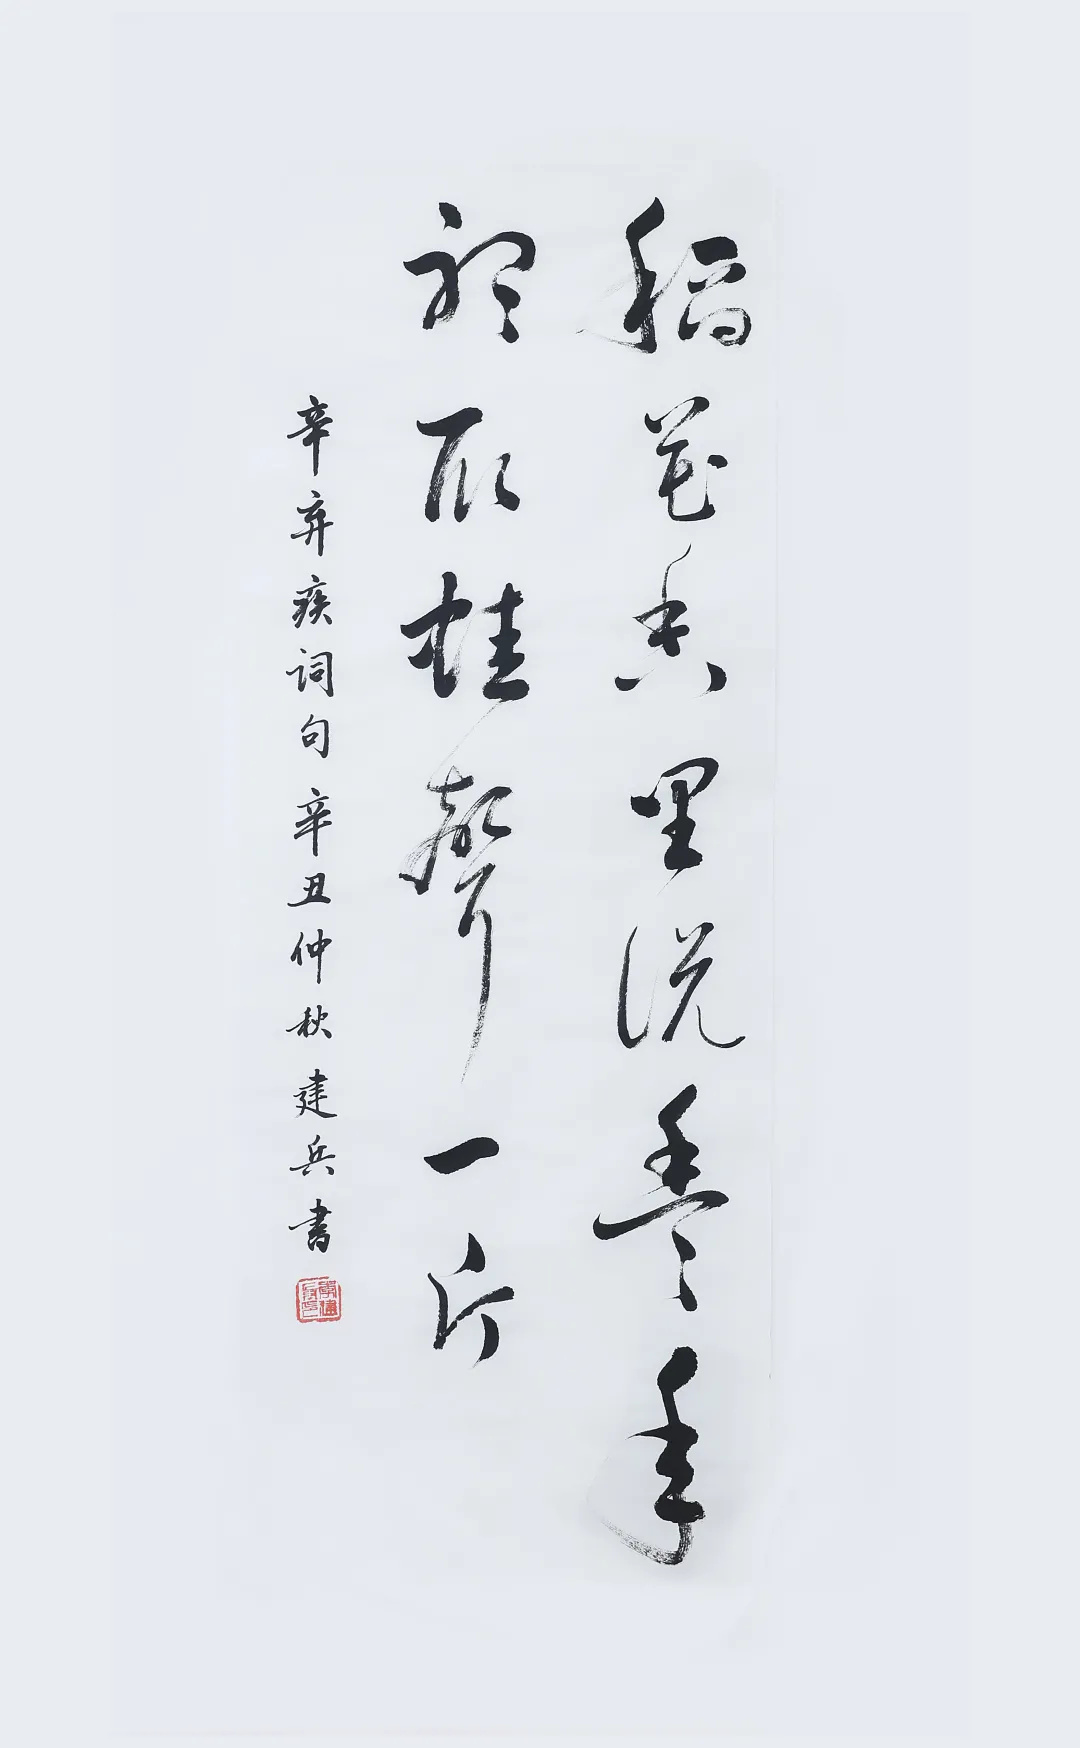 稻花香里说豐年
聽取蛙聲一片
辛弃疾词句 辛丑仲秋 建兵書